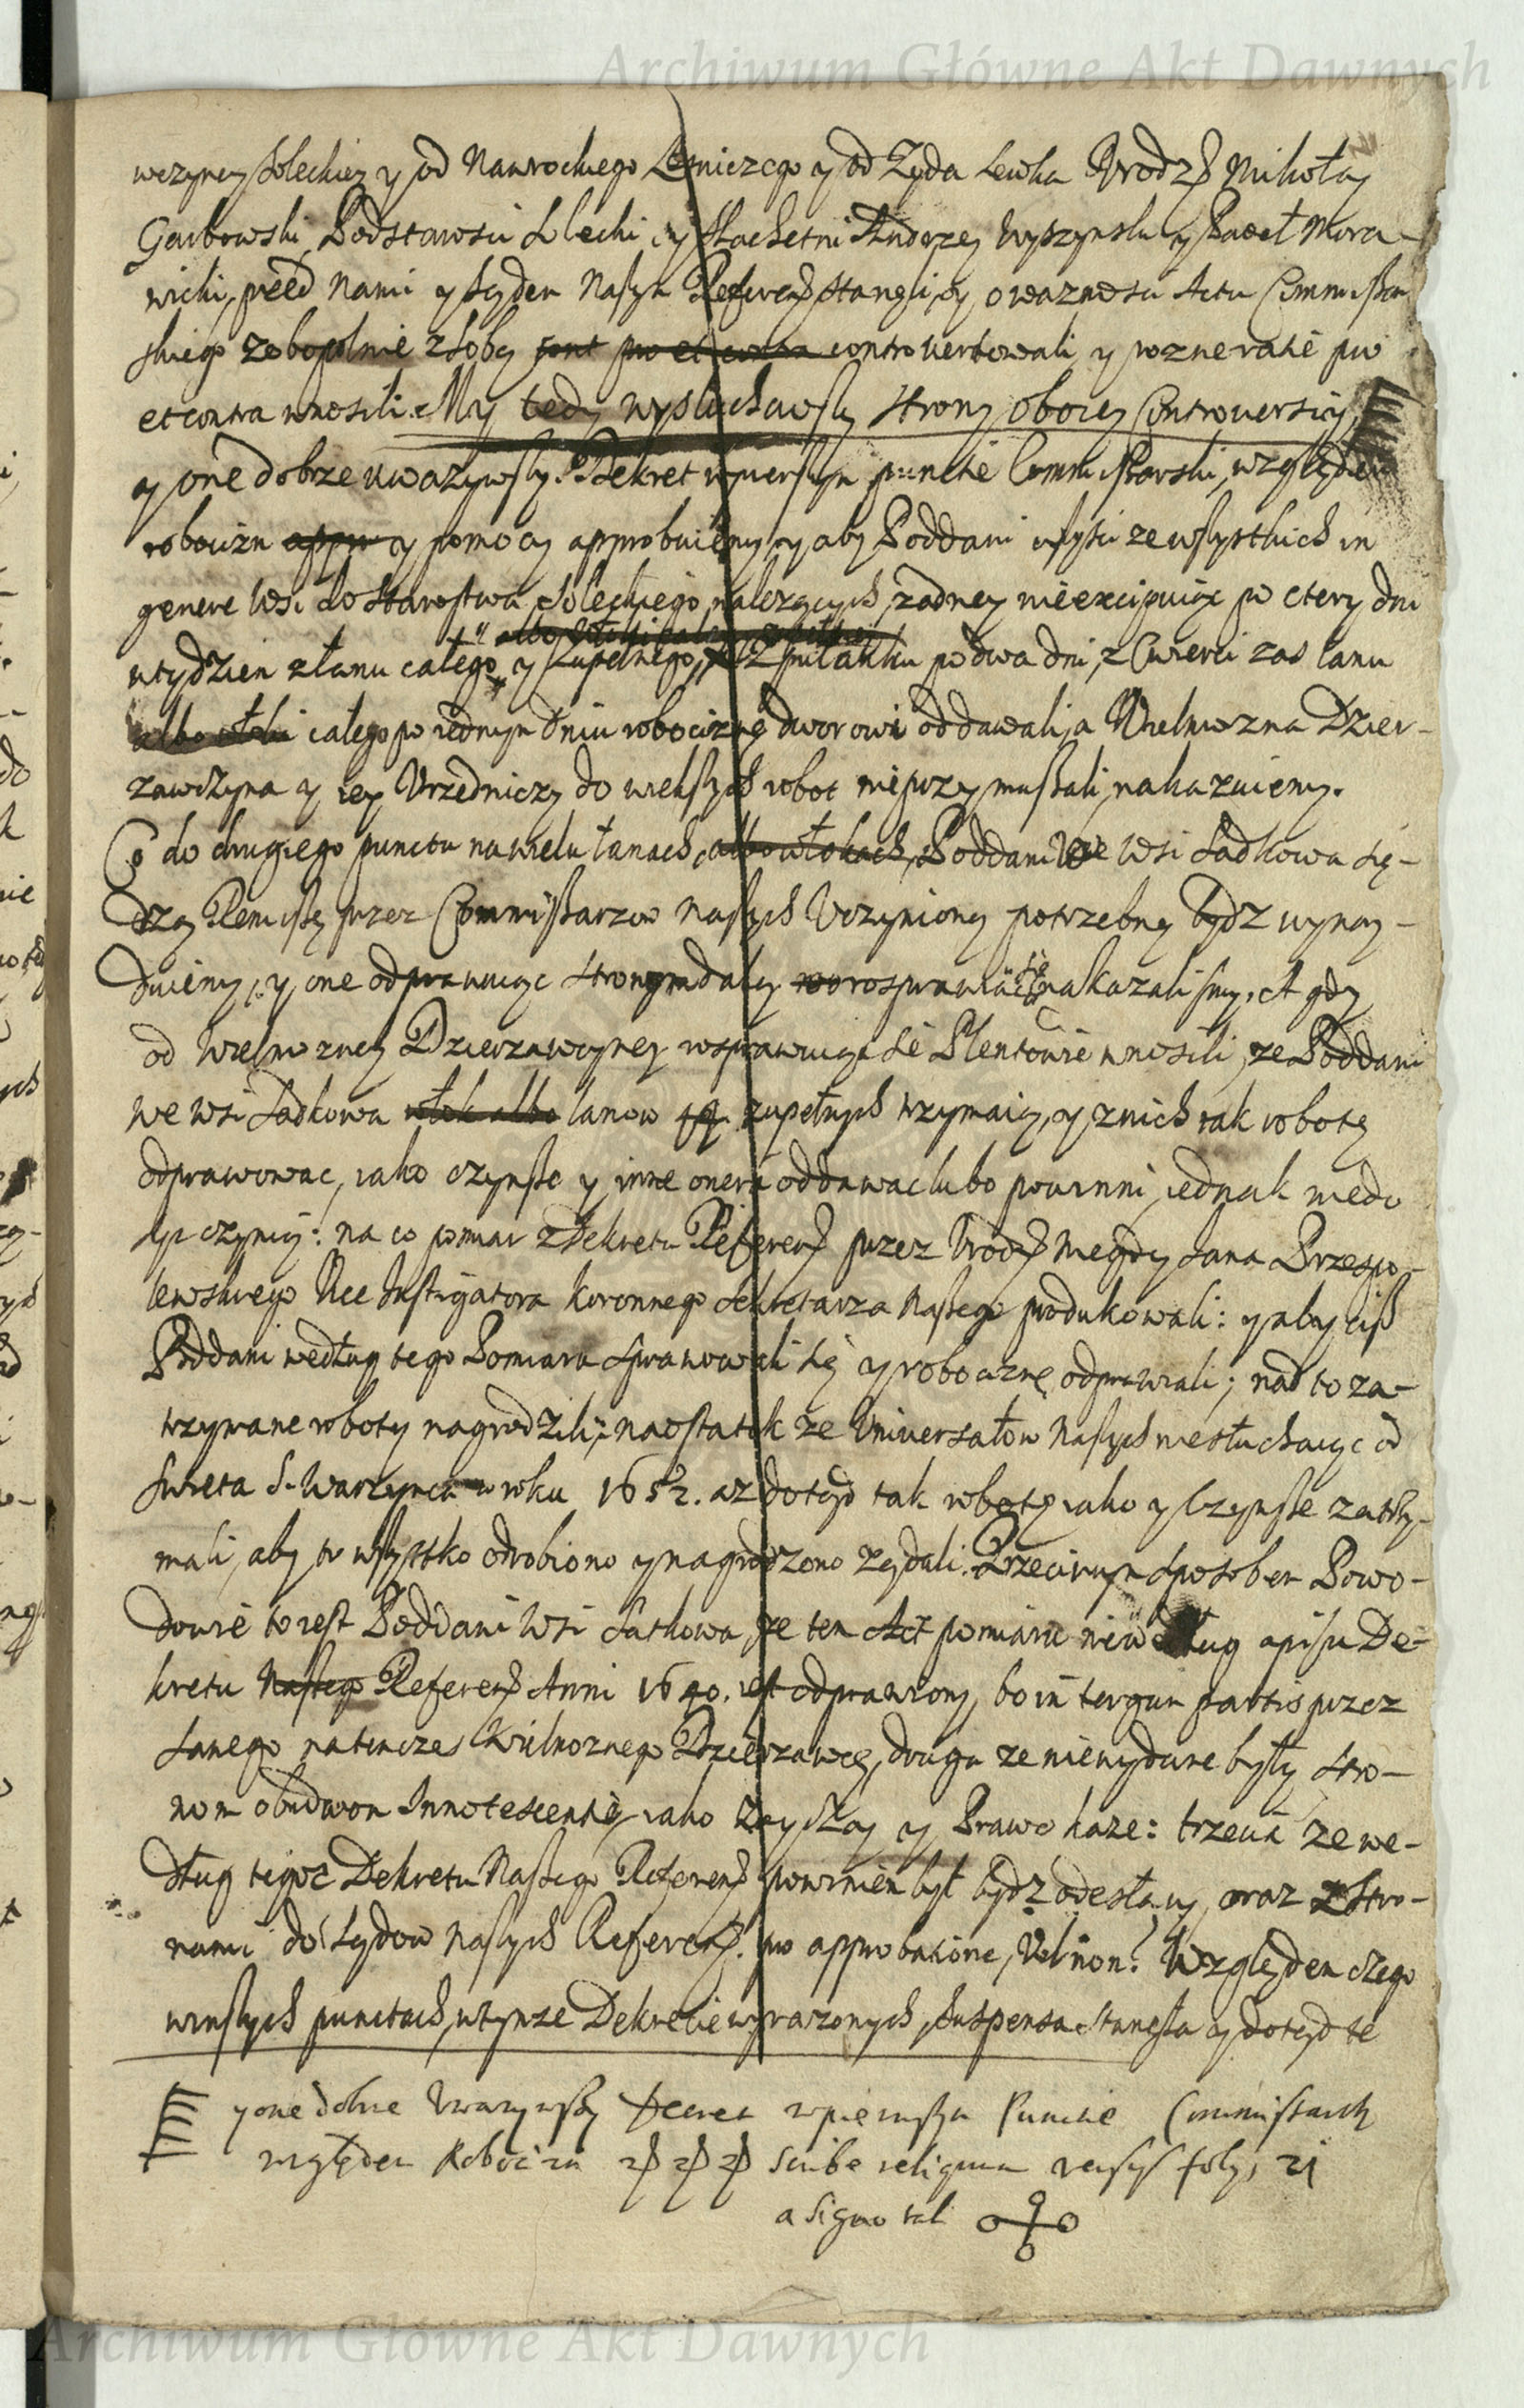 Archiwum Główne Akt Dawnych
wczyney Soleckiey y od Nawrockiego Leśniczego y od Żyda Lewka Urodz. Mikołay
Garbowski, Podstarości Solecki, y Slachetni Andrzey Wyszynski y Paweł Mora-
wicki, przed Nami y Sądem Naszym Referen. stanęli, y o ważnosci Actu Commissar-
skiego zobopolnie z sobą pro et contra controvertowali y rozne racie pro
et contra wnosili. My tedy wysłuchawszy strony oboiey Controversiy,
y one dobrze uwazywszy. Dekret w pierszym punctie Commissarski, względem
robocizn y pomocy approbuiemy, y aby Poddani wszyści ze wszystkich in
genere Wsi do Starostwa Soleckiego należących, zadney nie excipuiąc po cztery dni
w tydzien z łanu całego y zupełnego, z pułłanku po dwa dni, z Cwierci zas łanu
całego po iednym dniu robociznę dworowi oddawali, a Wielmozna Dzier-
zawczyna y iey Urzędniczy do wiekszych robot nie przymuszali, nakazuiemy.
Co do drugiego punctu na wielu łanach, albo włokach, Poddani we Wsi Sadkowa się-
dzą Remissę przez Commissarzow Naszych Uczynioną potrzebną bydz wynay-
duiemy, y one odprawuiąc stronom daley rosprawiać się nakazalismy. A gdy
od Wielmozney Dzierzawczyney w sprawuiąc sie Plentowie wnosili, ze Poddani
we wsi Sadkowa włok albo łanow 19. zupełnych trzymaią, y z nich tak robotę
odprawować, iako czynsze y inne onera oddawac lubo powinni, iednak niedo
syc czynią: na co pomiar z Dekretu Referen. przez Urodz. niegdy Jana Przespo-
lewskiego Vice Instigatora Koronnego Sekretarza Naszego produkowali: y aby ciż
Poddani według tego Pomiaru sprawowali się y robociznę odprawiali; nad to za-
trzymane roboty nagrodzili; na ostatek ze Universałow Naszych niesłuchaiąc od
swieta S. Warzynca w roku 1652. az dotąd tak robotę iako y Czynsze zatrzy-
mali, aby to wszystko odrobiono y nagrodzono ządali. Przeciwnym sposobem Powo-
dowie to iest Poddani Wsi Satkowa, ze ten Act pomiaru nie według opisu De-
kretu Naszego Referen. Anni 1640. iest odprawiony, bo in tergum partis przez
samego natenczas Wielmoznego Dzierzawcę, druga ze niewydane były stro-
nom obudwom Innotescentie, iako zwyczay y Prawo każe: trzecia ze we-
dług tegoz Dekretu Naszego Referen. powinien był bydz odesłany, oraz z stro-
nami do Sądow Naszych Referen. pro approbatione, Vel non. Względem czego
w inszych punctach, w tymze Dekrecie wyrazonych, suspensa stanęła y dotąd te
y one dobrze Uwazywszy Decret w pierwszym Punctie Commissarsk
względem Robocizn scribe reliquum versus foly, 21
a signo tali
Archiwum Główne Akt Dawnych